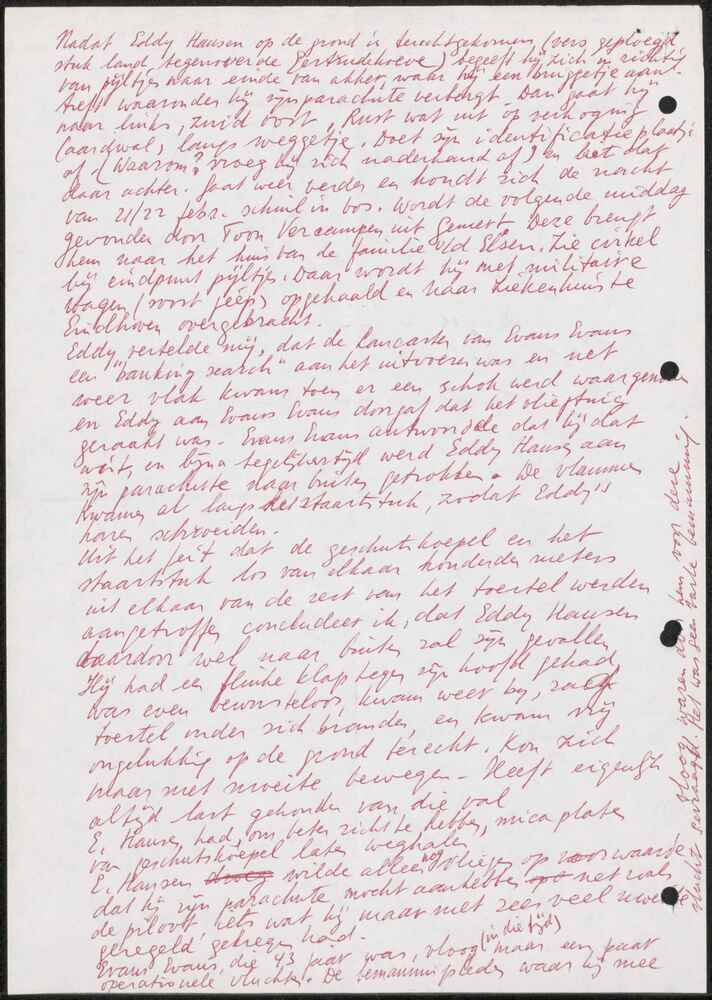 Nadat Eddy Hansen op de grond is terechtgekomen (vers geploegd
stuk land tegenover de Gertrudehoeve) begeeft hij zich in richting
van pijltjes naar einde van akker, waar hij een bruggetje aan-
treft waaronder hij zijn parachute verbergt. Dan gaat hij
naar links, zuid oost, Rust wat uit op verhoging
(aardwal) langs weggetje. Doet zijn identificatieplaatje
af. (Waarom? vroeg hij zich naderhand af) en laat dat
daar achter. Gaat weer verder en houdt zich de nacht
van 21/22 febr. schuil in bos. Wordt de volgende middag
gevonden door Toon Vercampen uit Gemert. Deze brengt
hem naar het huis van de familie v/d Elsen. Zie cirkel
bij eindpunt pijltjes. Daar wordt hij met militaire
wagen (soort jeep) opgehaald en naar ziekenhuis te
Eindhoven overgebracht.
Eddy vertelde mij, dat de Lancaster van Evans Evans
een "banking search" aan het uitvoeren was en net
weer vlak kwam toen er een schok werd waargenomen
en Eddy aan Evans Evans doorgaf dat het vliegtuig
geraakt was. Evans Evans antwoordde dat hij dat
wist, en bijna tegelijkertijd werd Eddy Hansen aan
zijn parachute naar buiten getrokken. De vlammen
kwamen al langs het staartstuk, zodat Eddy's
haren schroeiden.
Uit het feit dat de geschutskoepel en het
staartstuk los van elkaar honderden meters
uit elkaar van de rest van het toestel werden
aangetroffen concludeer ik, dat Eddy Hansen
daardoor wel naar buiten zal zijn gevallen
Hij had een flinke klap tegen zijn hoofd gehad,
was even bewusteloos, kwam weer bij, zag
toestel onder zich branden, en kwam vrij
ongelukkig op de grond terecht. Kon zich
maar met moeite bewegen. Heeft eigenlijk
altijd last gehouden van die val
E. Hansen had, om beter zicht te hebben, mica platen
van geschutskoepel laten weghalen
E. Hansen wilde alleen nog vliegen op voorwaarde
dat hij zijn parachute mocht aanhebben net zoals
de piloot, iets wat hij maar met zeer veel moeite
geregeld gekregen had.
Evans Evans, die 43 jaar was, vloog (in die tijd) maar een paar
operationele vluchten. De bemanningsleden waar hij mee
vloog waren door hem voor deze
vlucht Het was geen vaste bemanning.